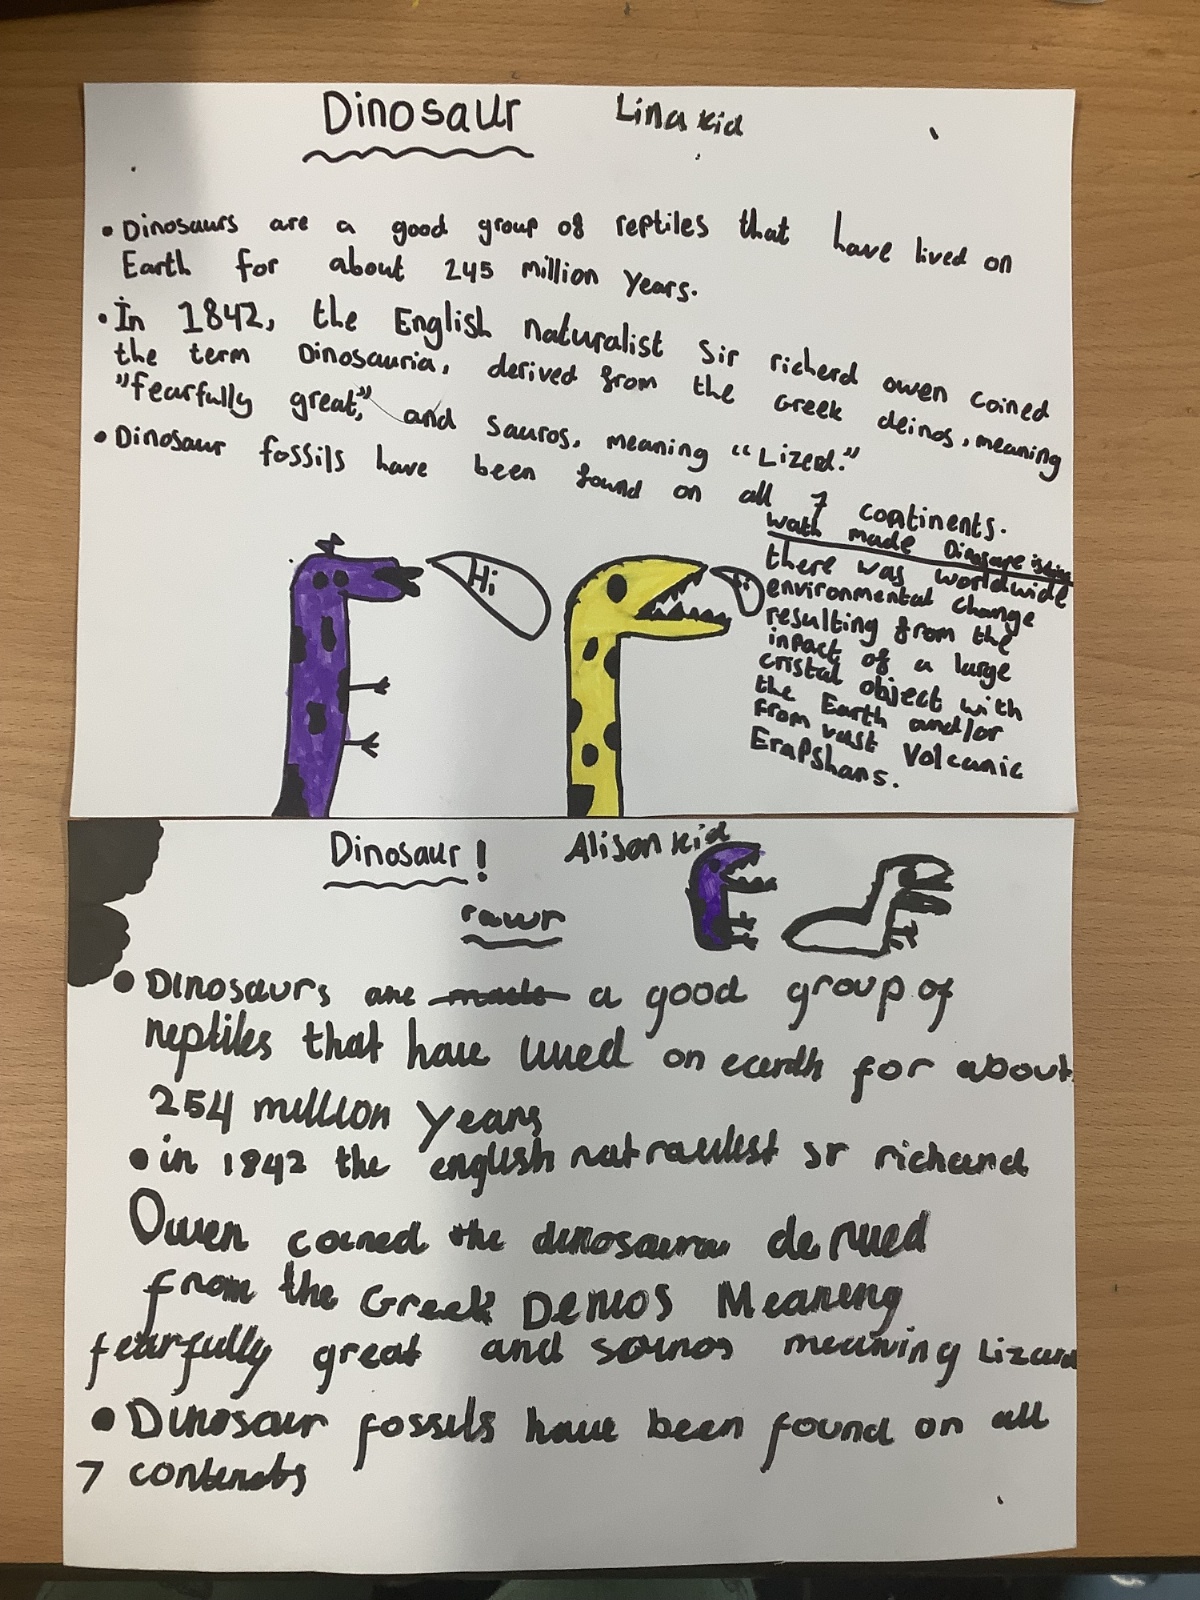 Dinosaur Lina kid
• Dinosaurs are a good group of reptiles that have lived on
Earth for about 245 million years.
• In 1842, the English naturalist Sir richerd owen coined
the term Dinosauria, derived from the Greek deinos, meaning
"fearfully great", and Sauros, meaning "Lizerd."
• Dinosaur fossils have been found on all 7 continents.
Hi
Hi
wath made
there was worldwide
environmental change
resulting from the
inpact of a large
cristal object with
the Earth and/or
from vast Volcanic
Erapshans.
Dinosaur! Alison kid
rawr
• Dinosaurs are made a good group of
reptiles that have lived on earth for about
254 million years
• in 1842 the english natraulist sr richard
Owen coined the dinosauria derived
from the Greek Deinos Meaning
fearfully great and sauros meaning Lizard
• Dinosaur fossils have been found on all
7 contenets